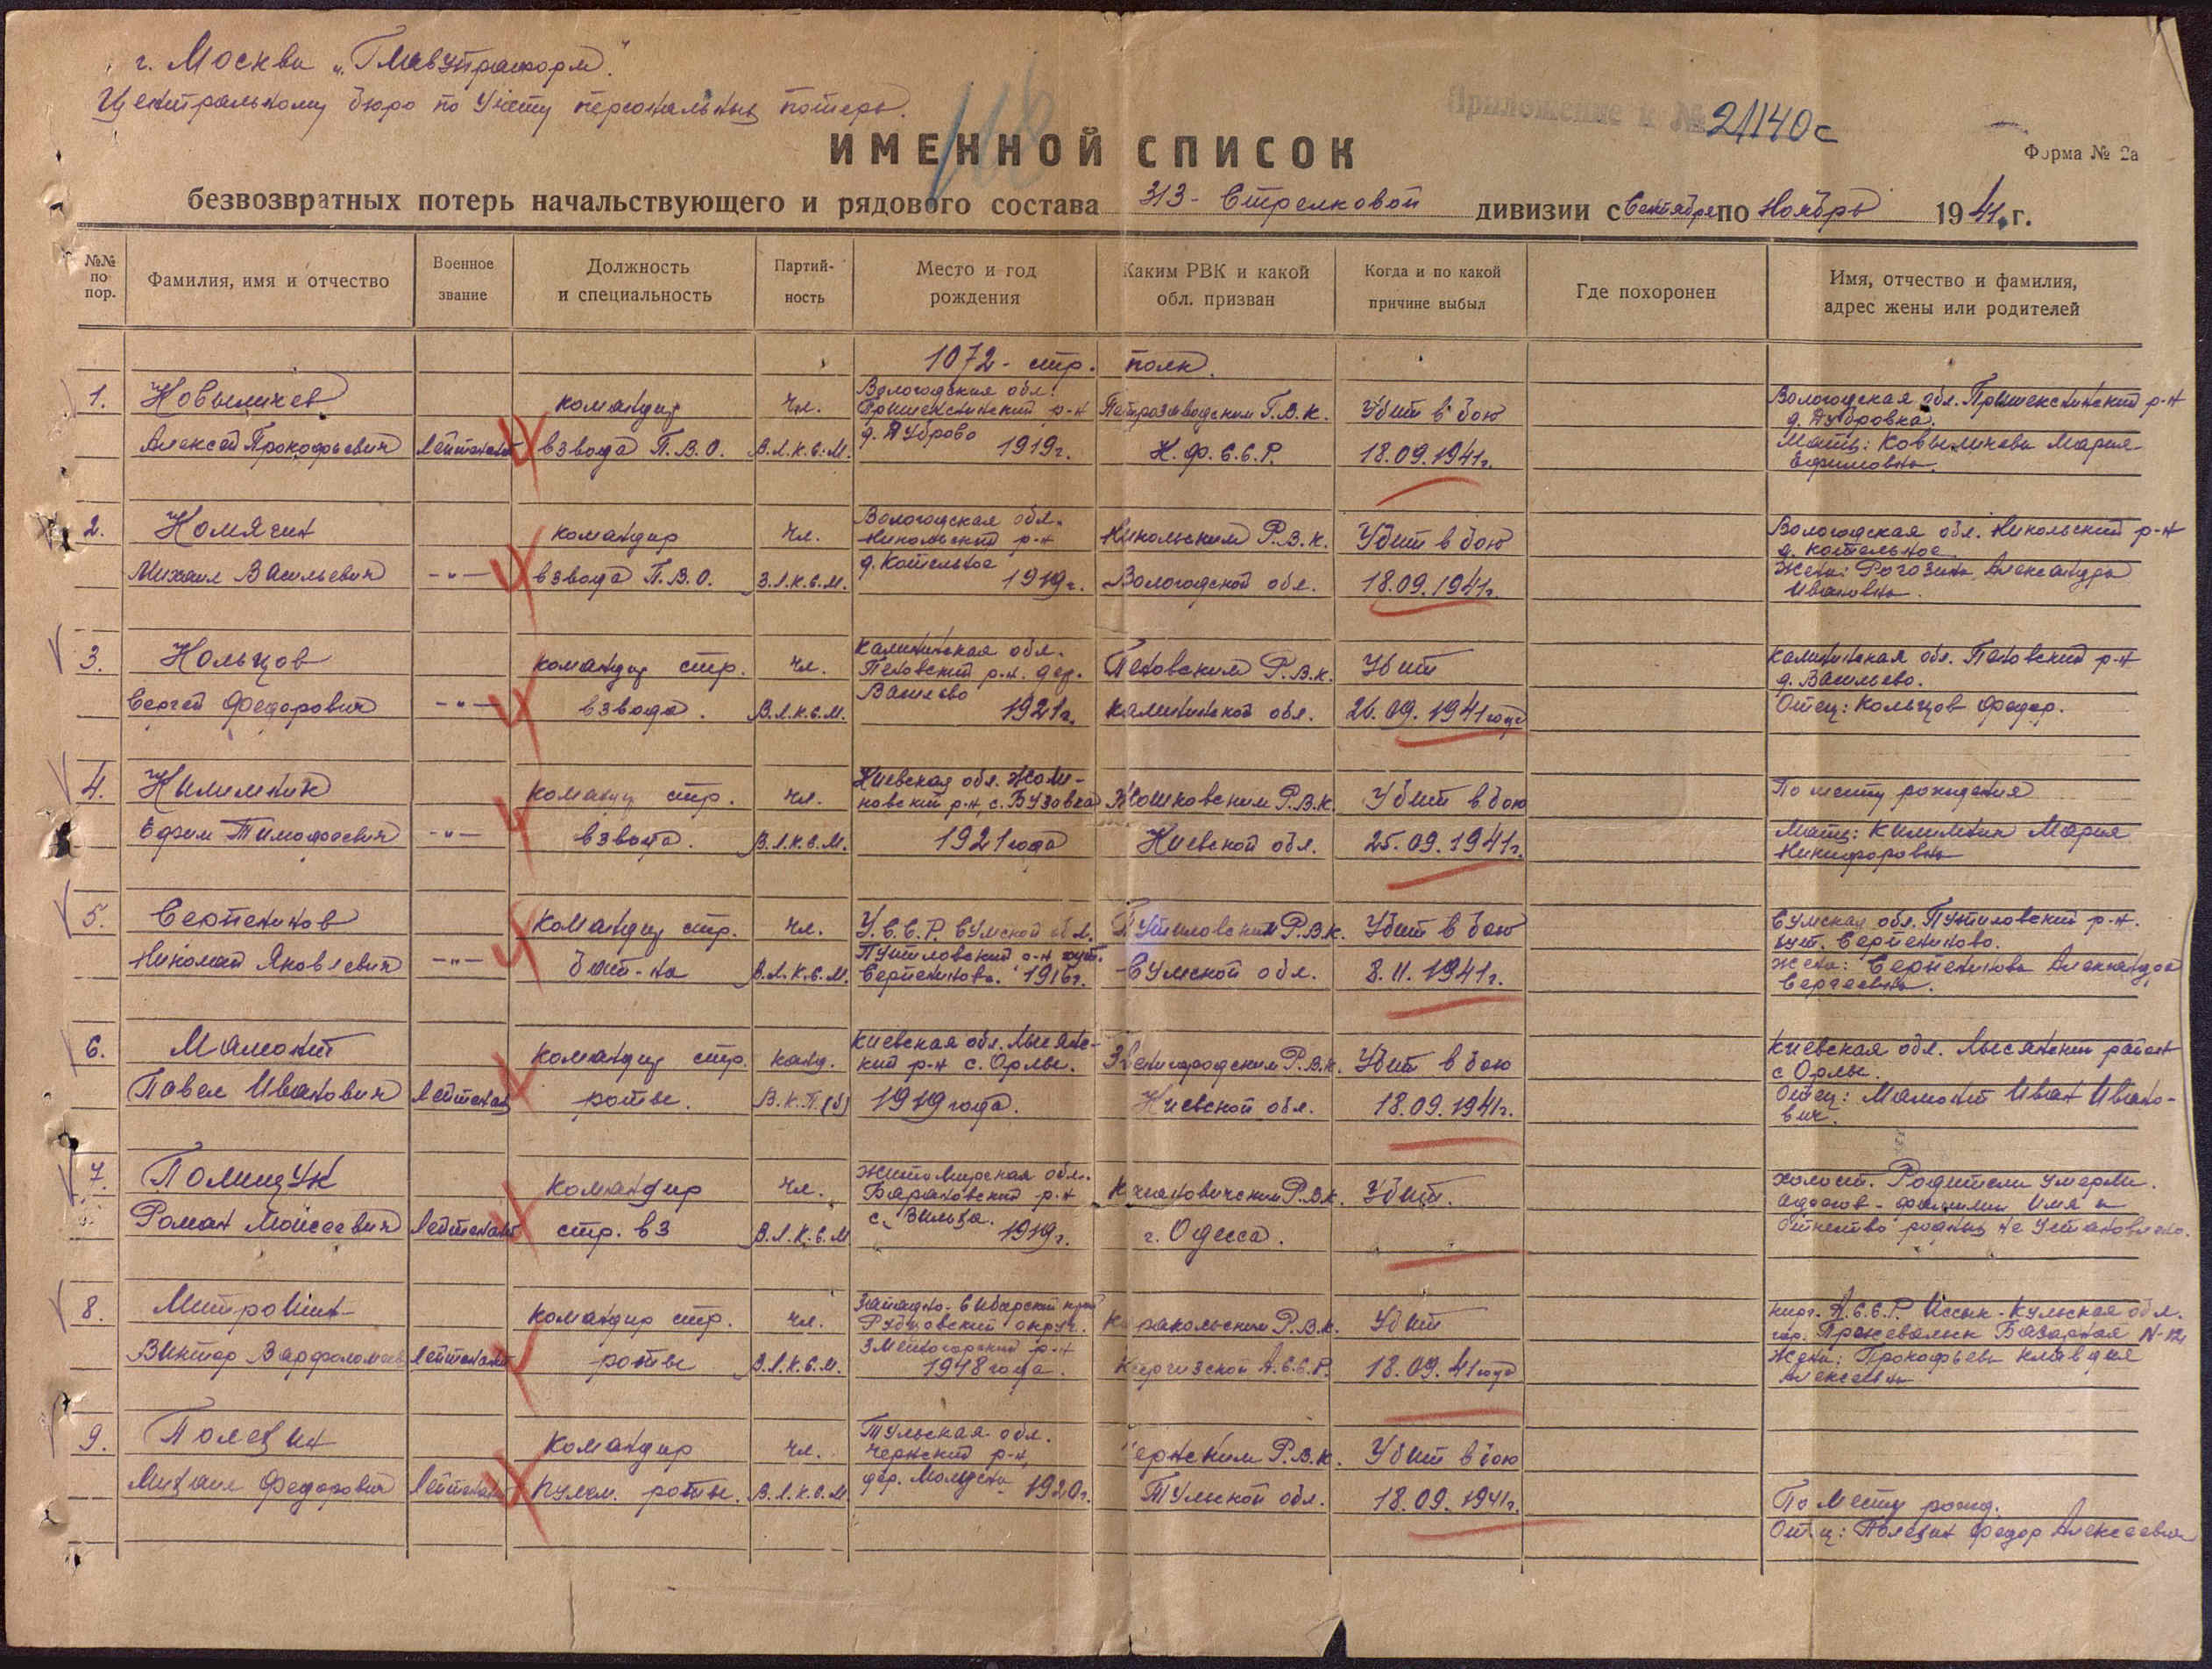 г. Москва „Главупраформ".
Центральному бюро по учету персональных потерь.
118
Приложение к № 21140с
ИМЕННОЙ СПИСОК
Форма № 2а
безвозвратных потерь начальствующего и рядового состава 313 - Стрелковой дивизии с Сентября по Ноябрь 1941 г.
№№ по пор.
Фамилия, имя и отчество
Военное звание
Должность и специальность
Партий-ность
Место и год рождения
Каким РВК и какой обл. призван
Когда и по какой причине выбыл
Где похоронен
Имя, отчество и фамилия, адрес жены или родителей
1072 - стр. полк.
1.
Ковыличев
Алексей Прокофьевич
Лейтенант
командир
взвода П.В.О.
чл.
В.Л.К.С.М.
Вологодская обл.
р-н
д. Дуброво
1919г.
Петрозаводским Г.В.К.
К.Ф.С.С.Р.
Убит в бою
18.09.1941г.
Вологодская обл. р-н
д. Дубровка.
Мать: Ковыличева Мария
Ефимовна.
2.
Комягин
Михаил Васильевич
-"-
командир
взвода П.В.О.
чл.
В.Л.К.С.М.
Вологодская обл.
Никольский р-н
д. Котельное
1919г.
Никольским Р.В.К.
Вологодской обл.
Убит в бою
18.09.1941г.
Вологодская обл. Никольский р-н
д. Котельное.
Жена: Рогозина Александра
Ивановна.
3.
Кольцов
Сергей Федорович
-"-
командир стр.
взвода.
чл.
В.Л.К.С.М.
Калининская обл.
Пеновский р-н. дер.
Васильево
1921г.
Пеновским Р.В.К.
Калининской обл.
Убит
26.09.1941 года
Калининская обл. Пеновский р-н
д. Васильево.
Отец: Кольцов Федор.
4.
Килимник
Ефим Тимофеевич
-"-
командир стр.
взвода.
чл.
В.Л.К.С.М.
Киевская обл.
р-н с. Бузовка
1921 года
Жашковским Р.В.К.
Киевской обл.
Убит в бою
25.09.1941г.
По месту рождения
Мать: Килимник Мария
Никифоровна
5.
Серпенинов
Николай Яковлевич
-"-
командир стр.
бат-на
чл.
В.Л.К.С.М.
У.С.С.Р. Сумской обл.
Путиловский р-н хут.
1916г.
Путиловским Р.В.К.
Сумской обл.
Убит в бою
8.11.1941г.
Сумская обл. Путиловский р-н.
хут. Серпениново.
Жена: Серпенинова Александра
Сергеевна.
6.
Мамонт
Павел Иванович
Лейтенант
командир стр.
роты.
канд.
В.К.П.(б)
Киевская обл. Лысянс-
кий р-н с. Орлы.
1919 года.
Звенигородским Р.В.К.
Киевской обл.
Убит в бою
18.09.1941г.
Киевская обл. Лысянский район
с Орлы.
Отец: Мамонт Иван Ивано-
вич.
7.
Полищук
Роман Моисеевич
Лейтенант
командир
стр. вз
чл.
В.Л.К.С.М
Житомирская обл.
Барановский р-н
с.
1919г.
Р.В.К.
г. Одесса.
Убит.
холост. Родители умерли.
Адресов - фамилии имя и
отчество родных не установлено.
8.
Митрошин
Виктор Варфоломеев
Лейтенант
командир стр.
роты
чл.
В.Л.К.С.М.
Западно-Сибирский край
Рубцовский округ.
Змеиногорский р-н
1918 года.
Каракольским Р.В.К.
Киргизской А.С.С.Р.
Убит
18.09.41 года
Кирг. А.С.С.Р. Иссык-Кульская обл.
гор. Пржевальск Базарная
Жена: Прокофьева Клавдия
Алексеевна
9.
Полехин
Михаил Федорович
Лейтенант
командир
пулем. роты.
чл.
В.Л.К.С.М
Тульская обл.
Чернский р-н
дер.
1920г.
Чернским Р.В.К.
Тульской обл.
Убит в бою
18.09.1941г.
По месту рожд.
Отец: Полехин Федор Алексеевич